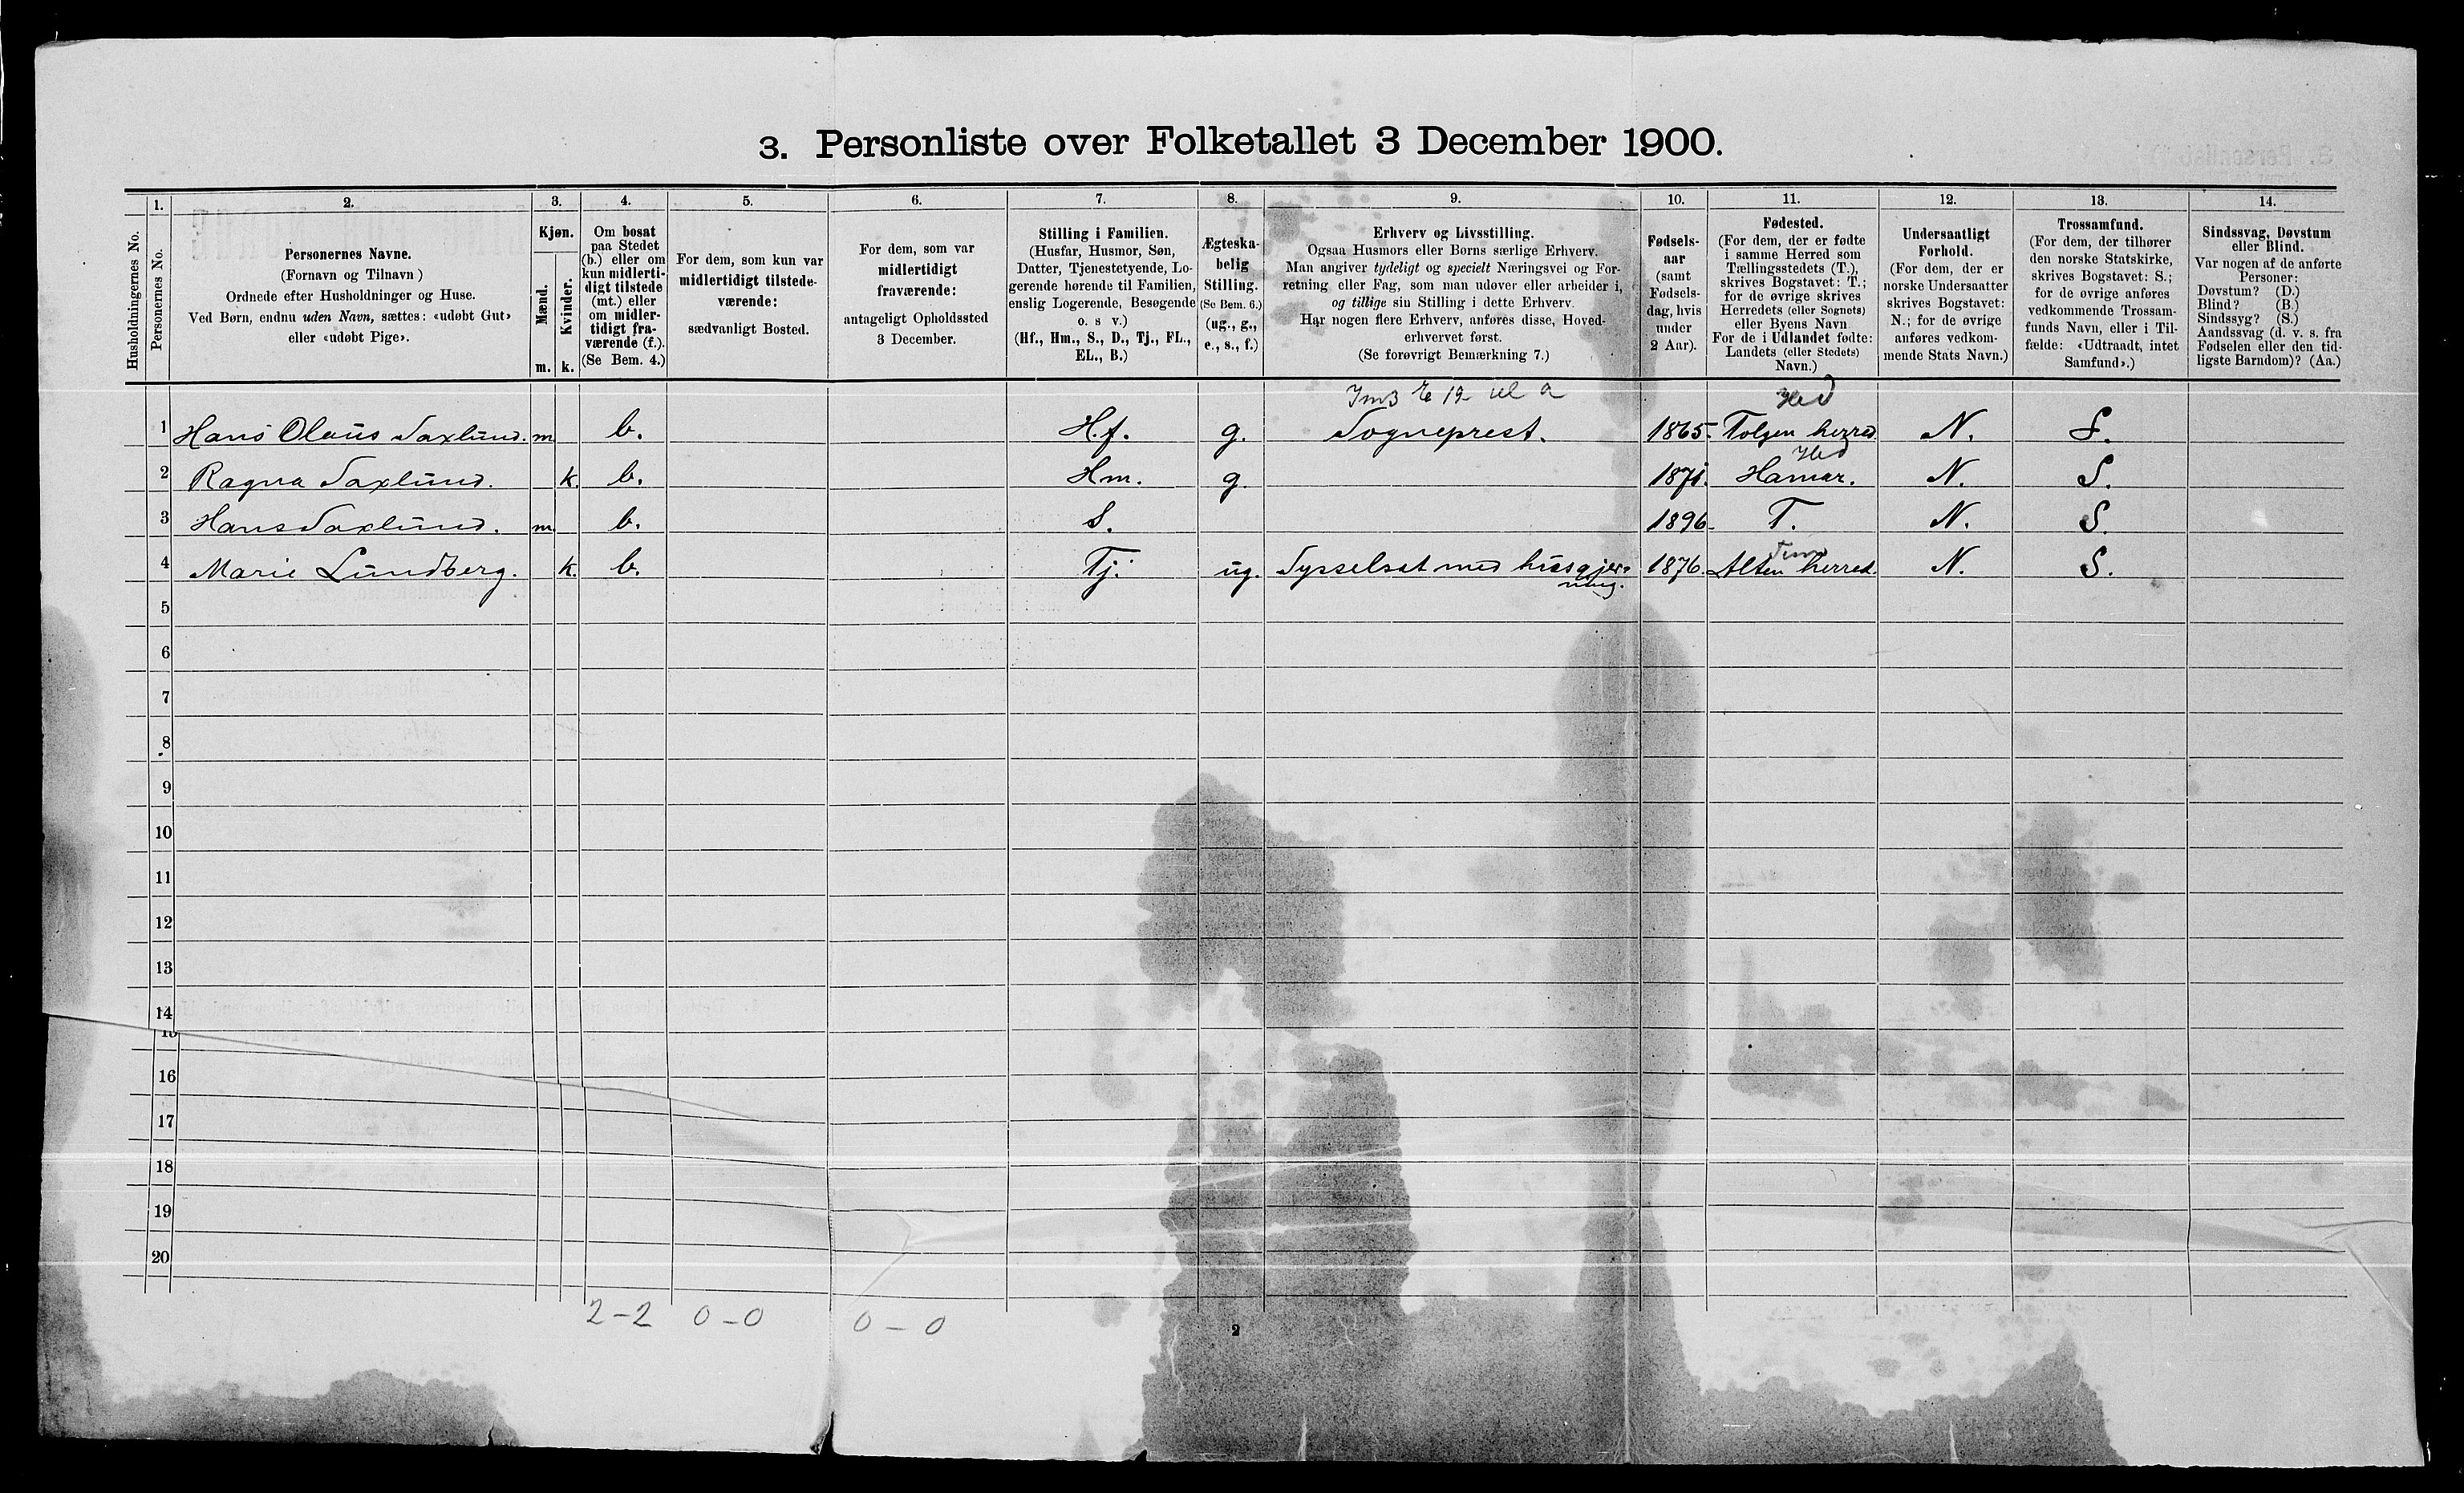 3. Personliste over Folketallet 3 December 1900.
1. 2. 3. 4. 5. 6. 7. 8. 9. 10. 11. 12. 13. 14.
Husholdningernes No.
Personernes No.
Personernes Navne.
(Fornavn og Tilnavn)
Ordnede efter Husholdninger og Huse.
Ved Børn, endnu uden Navn, sættes: «udøbt Gut»
eller «udøbt Pige».
Kjøn.
Mænd.
Kvinder.
m. k.
Om bosat
paa Stedet
(b.) eller om
kun midlerti-
digt tilstede
(mt.) eller
om midler-
tidigt fra-
værende (f.).
(Se Bem. 4.)
For dem, som kun var
midlertidigt tilstede-
værende:
sædvanligt Bosted.
For dem, som var
midlertidigt
fraværende:
antageligt Opholdssted
3 December.
Stilling i Familien.
(Husfar, Husmor, Søn,
Datter, Tjenestetyende, Lo-
gerende hørende til Familien,
enslig Logerende, Besøgende
o. s v.)
(Hf., Hm., S., D., Tj., FL.,
EL., B.)
Ægteska-
belig
Stilling.
(Se Bem. 6.)
(ug., g.,
e., s., f.)
Erhverv og Livsstilling.
Ogsaa Husmors eller Børns særlige Erhverv.
Man angiver tydeligt og specielt Næringsvei og For-
retning eller Fag, som man udøver eller arbeider i,
og tillige sin Stilling i dette Erhverv.
Har nogen flere Erhverv, anføres disse, Hoved-
erhvervet først.
(Se forøvrigt Bemærkning 7.)
Fødsels-
aar
(samt
Fødsels-
dag, hvis
under
2 Aar).
Fødested.
(For dem, der er fødte
i samme Herred som
Tællingsstedets (T.),
skrives Bogstavet: T.;
for de øvrige skrives
Herredets (eller Sognets)
eller Byens Navn
For de i Udlandet fødte:
Landets (eller Stedets)
Navn.)
Undersaatligt
Forhold.
(For dem, der er
norske Undersaatter
skrives Bogstavet:
N.; for de øvrige
anføres vedkom-
mende Stats Navn.)
Trossamfund.
(For dem, der tilhører
den norske Statskirke,
skrives Bogstavet: S.;
for de øvrige anføres
vedkommende Trossam-
funds Navn, eller i Til-
fælde: «Udtraadt, intet
Samfund».)
Sindssvag, Døvstum
eller Blind.
Var nogen af de anførte
Personer:
Døvstum? (D.)
Blind? (B.)
Sindssyg? (S.)
Aandssvag (d. v. s. fra
Fødselen eller den tid-
ligste Barndom)? (Aa.)
Hed
1 Hans Olaus Saxlund. m b. H.f. g. Sogneprest. 1865. Tolgen herred. N. S.
Hed
2 Ragna Saxlund. k. b. Hm. g. 1871. Hamar. N. S.
3 Hans Saxlund. m. b. S. 1896. T. N. S.
4 Marie Lundberg. k. b. Tj. ug. Sysselsat med husgjer- 1876. Alten herred. N. S.
ning.
5
6
7
8
9
10
11
12
13
14
15
16
17
18
19
20
2-2 0-0 0-0
2